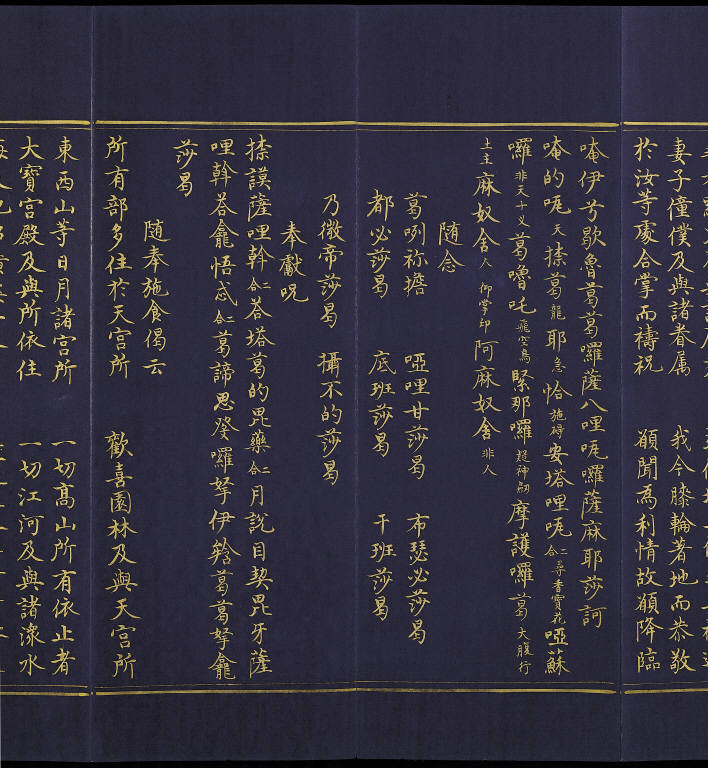 妻子僮僕及與諸眷属　我今膝輪著地而恭敬
於汝等處合掌而禱祝　願聞為利情故願降臨
唵伊兮歇魯葛葛囉薩八哩嗢囉薩麻耶莎訶
唵的嗢天捺葛龍耶急恰施碍安塔哩嗢二合尋香寶花啞蘇
囉非天十义葛嚕吒飛空鳥緊那囉疑神劒摩護囉葛大腹行
土主麻奴舍人仰掌印阿麻奴舍非人
随念
葛咧祢擔　啞哩甘莎曷　布瑟必莎曷
都必莎曷　底班莎曷　干班莎曷
乃微帝莎曷　攝不的莎曷
奉獻呪
捺謨薩哩斡二合荅塔葛的毘藥二合月說目契毘牙薩
哩斡荅龕悟忒二合葛諦思癹囉拏伊𥿊葛葛拏龕
莎曷
随奉施食偈云
所有部多住於天宫所　歡喜園林及與天宫所
東西山等日月諸宫所　一切髙山所有依止者
大寶宫殿及與所依住　一切江河及與諸濠水